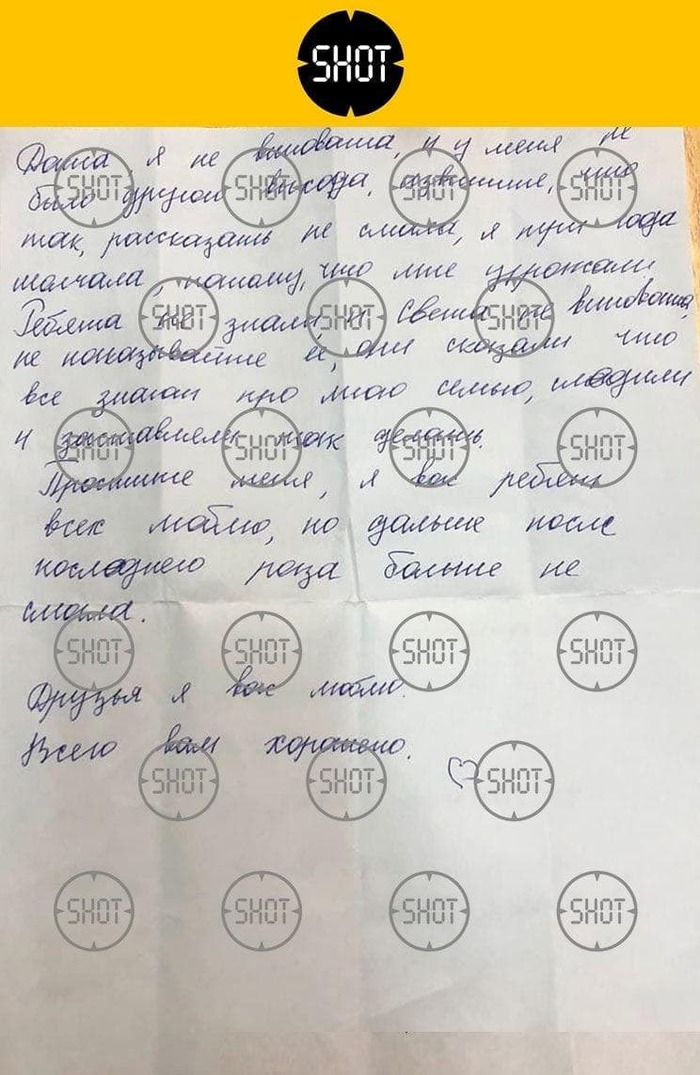 SHOT
Даша, я не виновата, и у меня не
было другого выхода, извините, что
так, рассказать не смогла, я три года
молчала, потому, что мне угрожали.
Ребята не знали и Света не виновата,
не наказывайте её, они сказали что
все знают про мою семью, следили
и заставляли так делать.
Простите меня, я вас ребята
всех люблю, но дальше после
последнего раза больше не
смогла.
Друзья я вас люблю.
Всего вам хорошего.
SHOT SHOT SHOT SHOT
SHOT SHOT SHOT
SHOT SHOT SHOT SHOT
SHOT SHOT SHOT SHOT
SHOT SHOT SHOT
SHOT SHOT SHOT SHOT